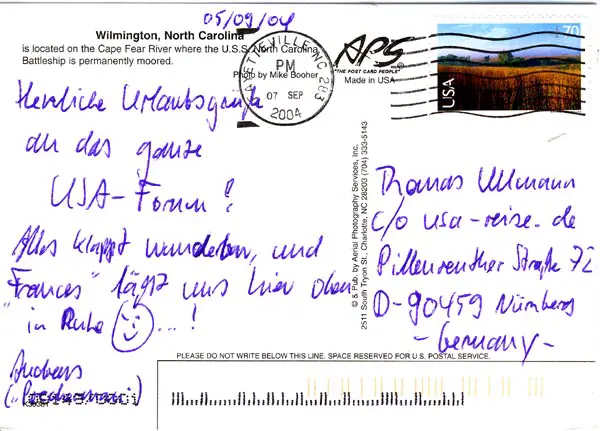 05/09/04
Wilmington, North Carolina
is located on the Cape Fear River where the U.S.S. North Carolina
Battleship is permanently moored.
Photo by Mike Booher
FAYETTEVILLE NC 283
PM
07 SEP
2004
APS
"THE POST CARD PEOPLE"
Made in USA
USA
70
Herzliche Urlaubsgrüße
an das ganze
USA-Forum!
Alles klappt wunderbar, und
"Frances" lässt uns hier oben
in Ruhe ☺...!
Andreas
© & Pub. by Aerial Photography Services, Inc.
2511 South Tryon St., Charlotte, NC 28203 (704) 333-5143
Thomas Ullmann
c/o usa-reise.de
Pillenreuther Straße 72
D-90459 Nürnberg
- Germany -
PLEASE DO NOT WRITE BELOW THIS LINE. SPACE RESERVED FOR U.S. POSTAL SERVICE.